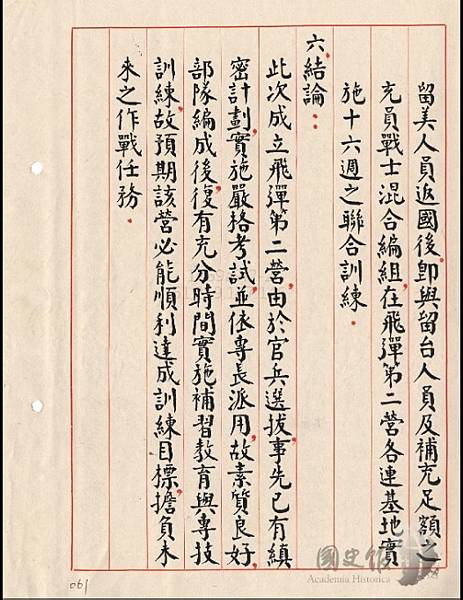 留美人員返國後，即與留台人員及補充足額之
充員戰士混合編組，在飛彈第二營各連基地實
施十六週之聯合訓練。
六、結論：
此次成立飛彈第二營，由於官兵選拔事先已有縝
密計劃，實施嚴格考試，並依專長派用，故素質良好，
部隊編成後，復有充分時間實施補習教育與專技
訓練，故預期該營必能順利達成訓練目標，擔負未
來之作戰任務。
061
國史館
Academia Historica